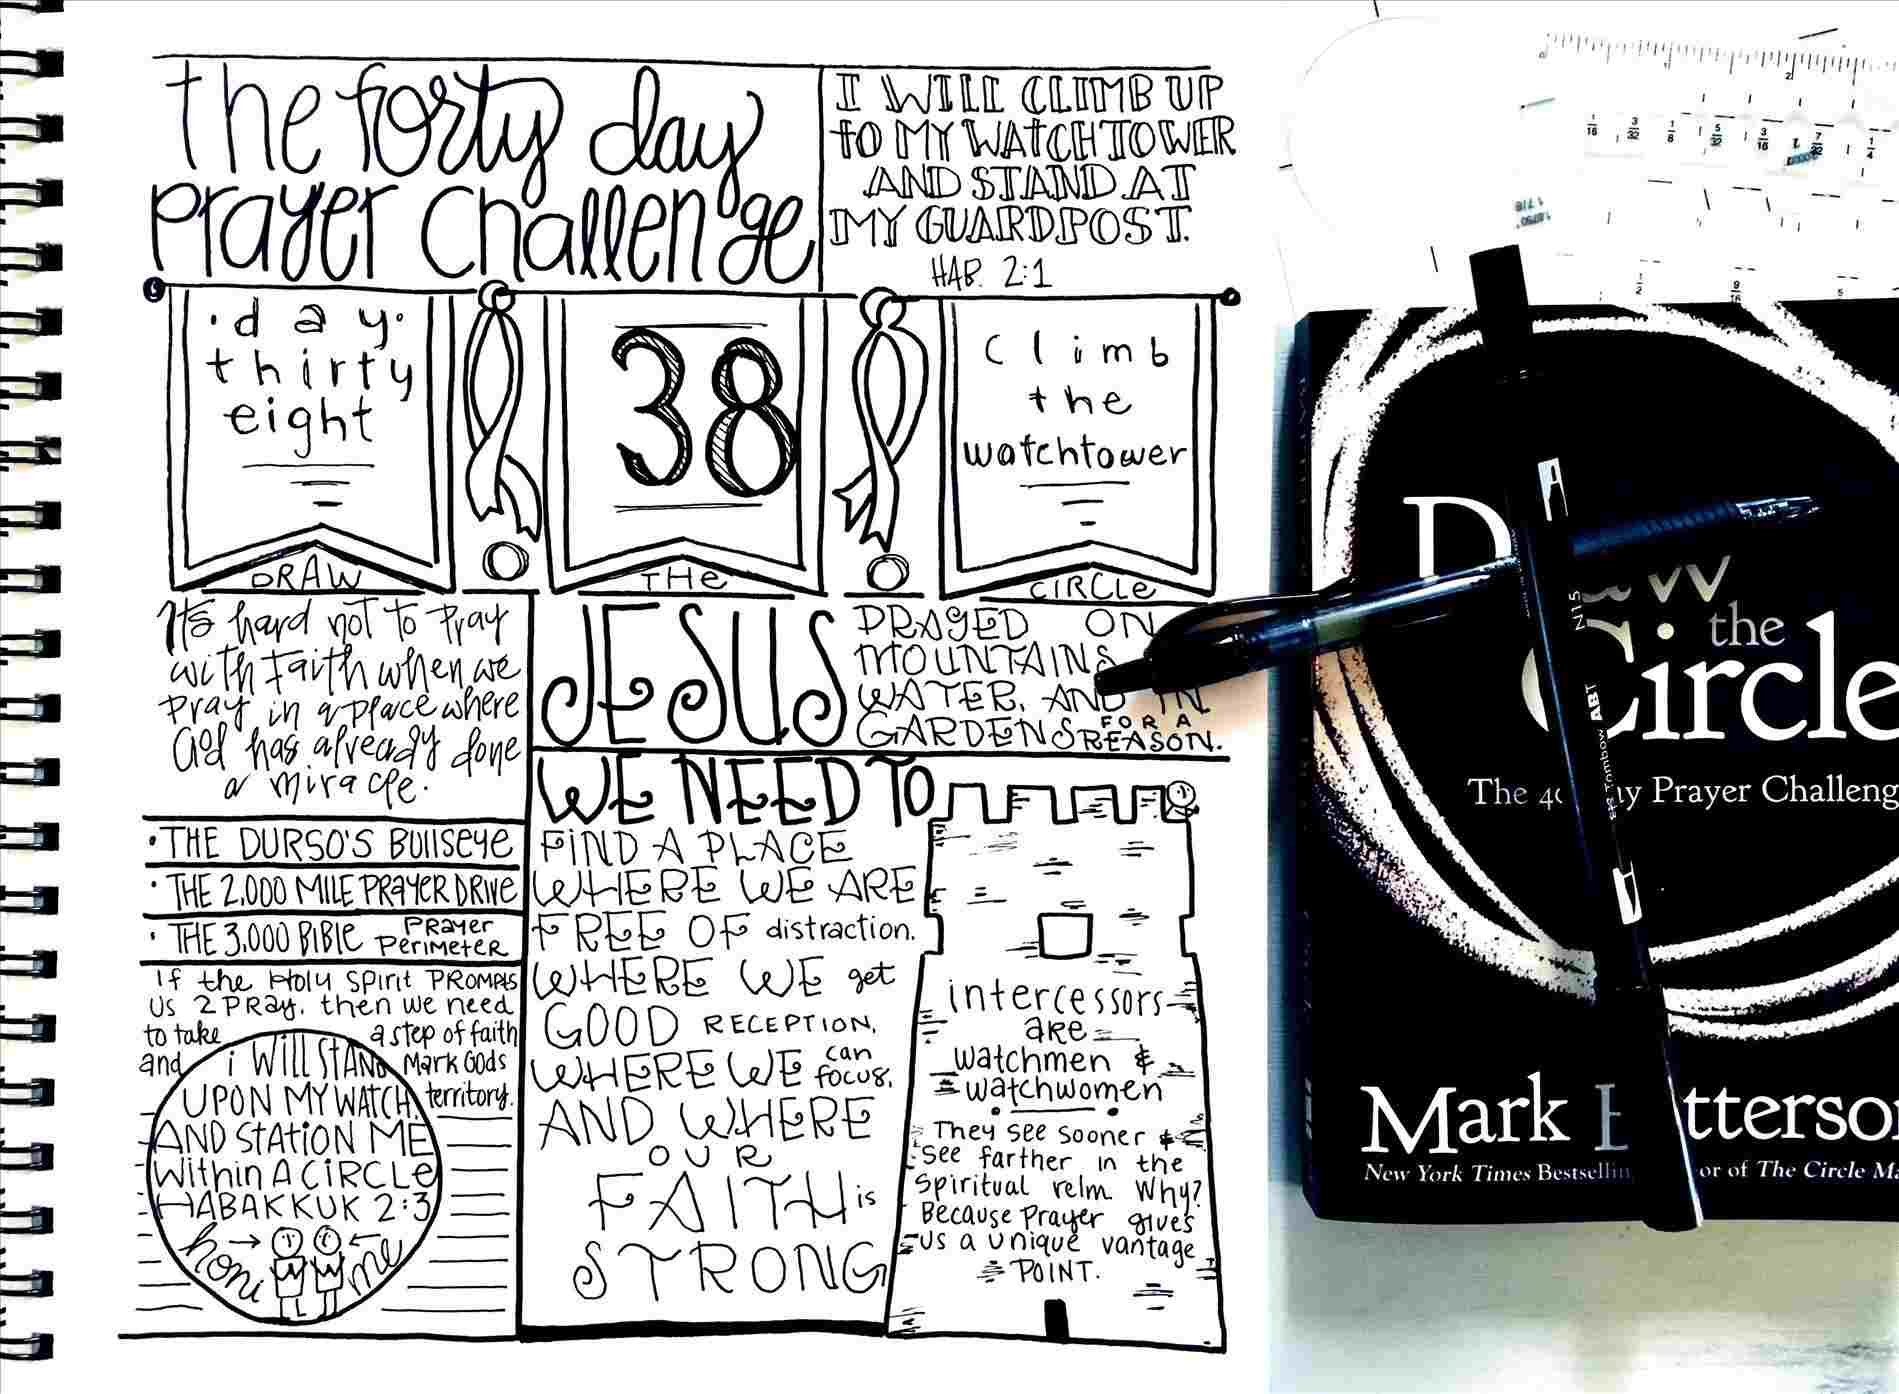 the forty day
prayer challenge
I WILL CLIMB UP
TO MY WATCHTOWER
AND STAND AT
MY GUARDPOST.
HAB. 2:1
·day·
thirty
eight
38
climb
the
watchtower
DRAW
THE
CIRCLE
It's hard not to pray
with faith when we
pray in a place where
God has already done
a miracle.
JESUS
PRAYED ON
MOUNTAINS
WATER, AND IN
GARDENS FOR A
REASON.
· THE DURSO'S BULLSEYE
· THE 2,000 MILE PRAYER DRIVE
· THE 3,000 BIBLE PRAYER
PERIMETER
If the Holy Spirit PROMPTS
US 2 PRAY, then we need
to take a step of faith
and Mark Gods
territory.
i WILL STAND
UPON MY WATCH,
AND STATION ME
Within A CIRCLE
HABAKKUK 2:3
honi me
WE NEED TO
FIND A PLACE
WHERE WE ARE
FREE OF distraction.
WHERE WE get
GOOD RECEPTION,
WHERE WE can
focus,
AND WHERE
OUR
FAITH is
STRONG
intercessors
are
watchmen &
watchwomen
They see sooner &
see farther in the
spiritual relm. Why?
Because prayer gives
us a unique vantage
POINT.
1/16 3/32 1/8 5/32 3/16 7/32 1/4
1/2 9/16
the
Circle
The Prayer Challeng
Mark
New York Times of The Circle Ma
N15
ABT
Tombow